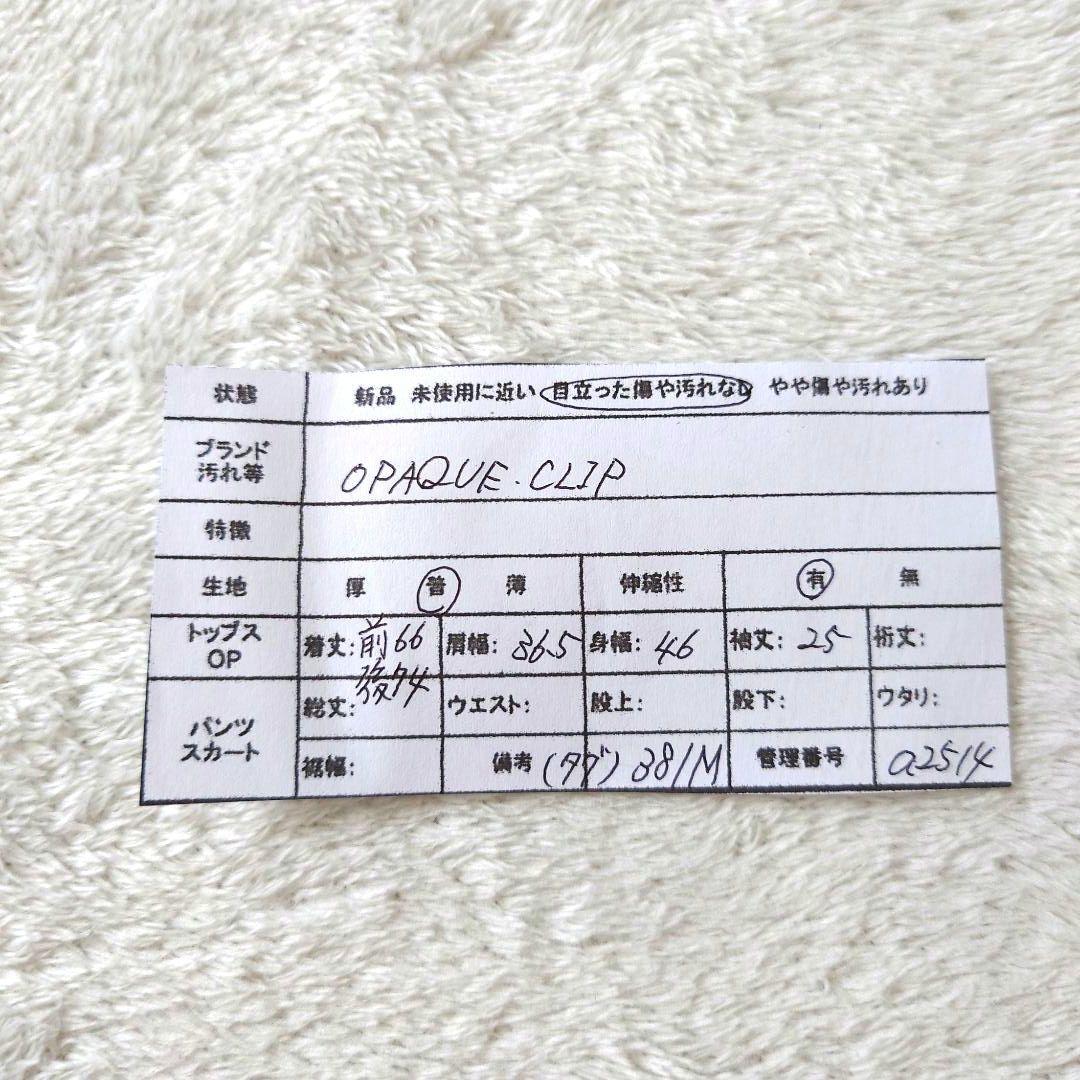 状態 新品 未使用に近い 目立った傷や汚れなし やや傷や汚れあり
ブランド
汚れ等 OPAQUE.CLIP
特徴
生地 厚 普 薄 伸縮性 有 無
トップス
OP
着丈: 前66
後74
肩幅: 36.5 身幅: 46 袖丈: 25 裄丈:
パンツ
スカート
総丈: ウエスト: 股上: 股下: ワタリ:
裾幅: 備考 (タグ) 38/M 管理番号 a2514